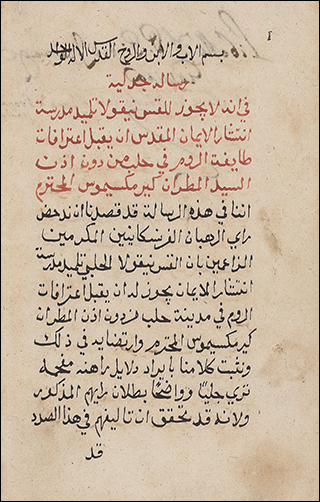 بسم الاب والابن والروح القدس الاله الواحد
رساله جدلية
في انه لا يجوز للقس نيقولا تلميذ مدرسة
انتشار الايمان المقدس ان يقبل اعترافات
طايفة الروم في حلب من دون اذن
السيد المطران كير مكسيموس المحترم
اننا في هذه الرسالة قد قصدنا ان ندحض
راي الرهبان الفرنسكانيين المكرمين
الزاعمين بان القس نيقولا الحلبي تلميذ مدرسة
انتشار الايمان يجوز له ان يقبل اعترافات
الروم في مدينة حلب من دون اذن المطران
كير مكسيموس المحترم وارتضايه في ذلك
ونثبت كلامنا بايراد دلايل راهنه مفحمه
تري جليًا وواضحًا بطلان رايهم المذكور
ولانه قد تحقق ان تاليفهم في هذا الصدد
قد